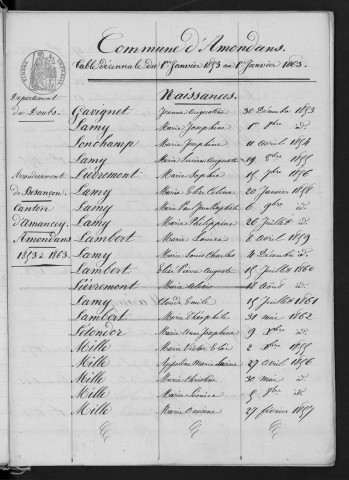 Commune d'Amondans.
Table décennale du 1er Janvier 1853 au 1er Janvier 1863.
Département
du Doubs.
Arrondissement
de Besançon.
Canton
d'Amancey
Amondans
1853 à 1863.
Naissances.
Gavignet Jeanne Augustine 30 Décembre 1853
Lamy Marie Josephine 1er id.
Lonchamp Marie Josephine 11 Avril 1854
Lamy Marie Augustine 19 1855
Lièvremont Marie Sophie 15 7bre 1856
Lamy Marie Elise Celina 20 Janvier 1858
Lamy Marie 6 7bre id.
Lamy Marie Philippine 26 Juillet id.
Lambert Marie Louise 8 avril 1859
Lamy Marie Louis Charles 4 Décembre id.
Lambert Elie Pierre Auguste 15 Juillet 1860
Lièvremont Marie 18 Août id.
Lamy Claude Emile 15 Juillet 1861
Lambert Marie Théophile 31 mai 1862
Letondor Marie Anna Josephine 9 id.
Mille Marie Victor Eloi 2 Xbre 1855
Mille Hyppolite Marie 27 avril 1856
Mille Marie Christine 30 mai id.
Mille Marie Louise 5 8bre id.
Mille Marie 27 février 1857